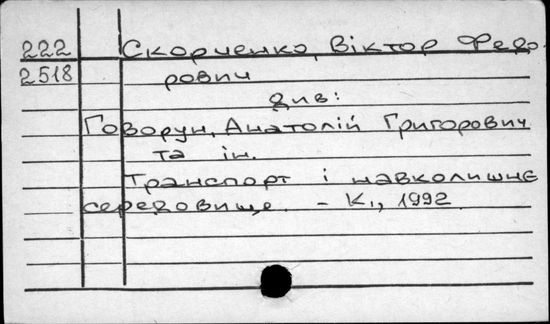 222 Скорченко, Віктор Федо-
2518 рович
див:
Говорун, Анатолій Григорович
та ін.
Транспорт і навколишнє
середовище. - К., 1992.